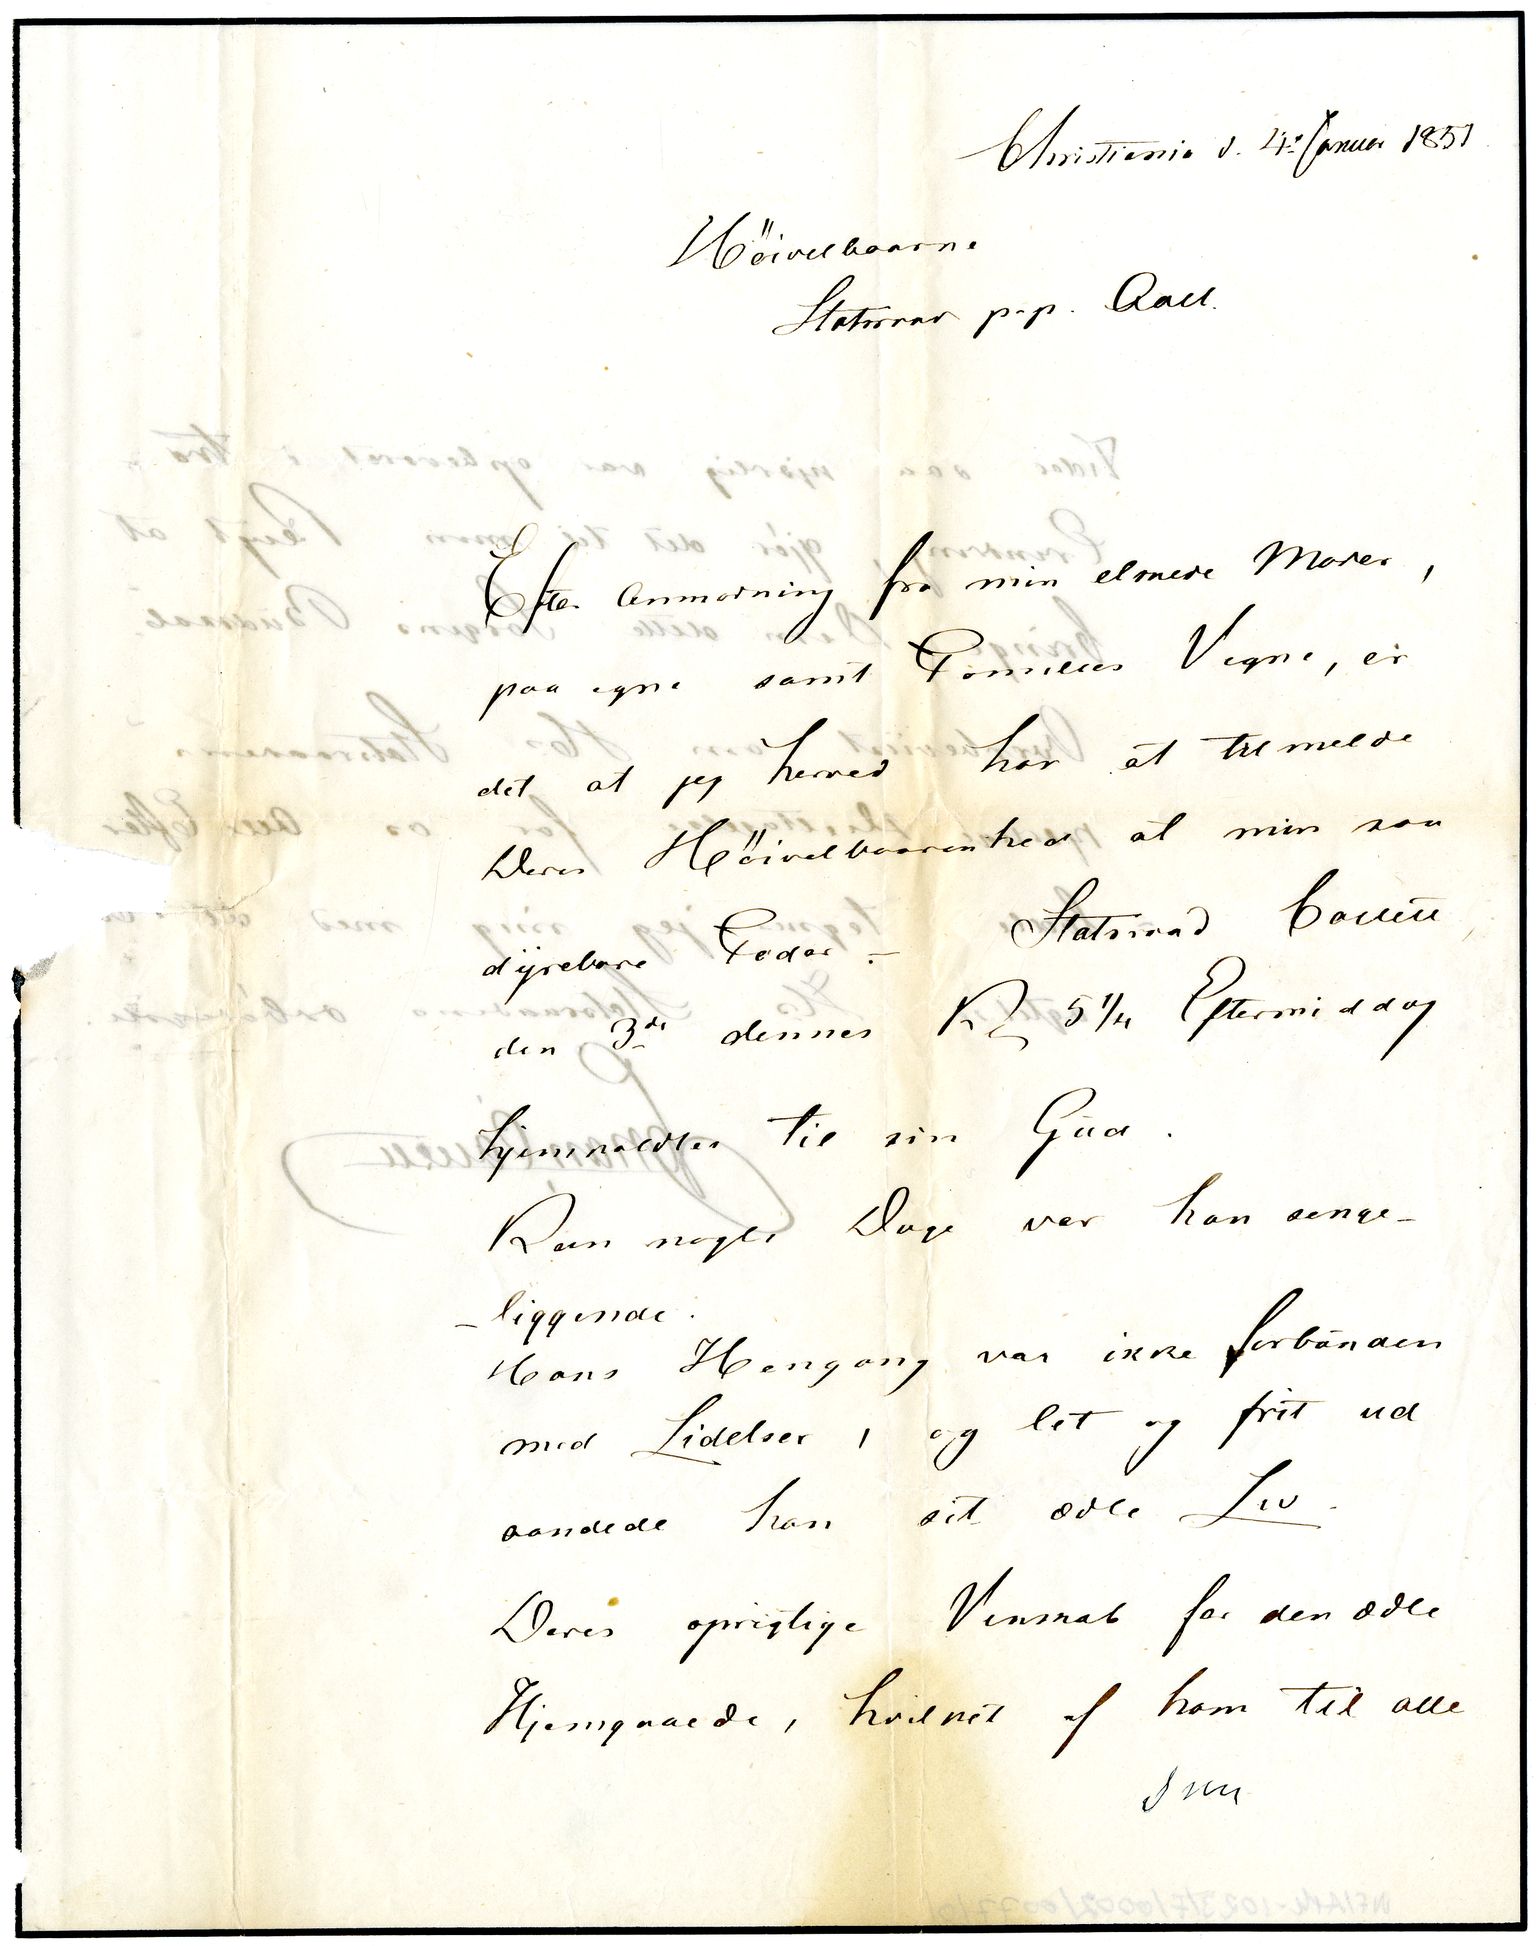 Christiania d. 4de Januar 1851
Höivelbaarne
Statsraad p.p. Aall.
Efter Anmodning fra min elskede Moder,
paa egne samt Families Vegne, er
det at jeg herved har at tilmelde
Deres Höivelbaarenhed at min saa
dyrebare Fader - Statsraad Collett
den 3de dennes Kl 5 1/4 Eftermiddag
hjemkaldtes til sin Gud.
Kun nogle Dage var han senge-
-liggende.
Hans Hengang var ikke forbunden
med Lidelser, og let og frit ud
aandede han sit ædle Liv.
Deres oprigtige Venskab for den ædle
Hjemgaaede, hvilket af ham til alle